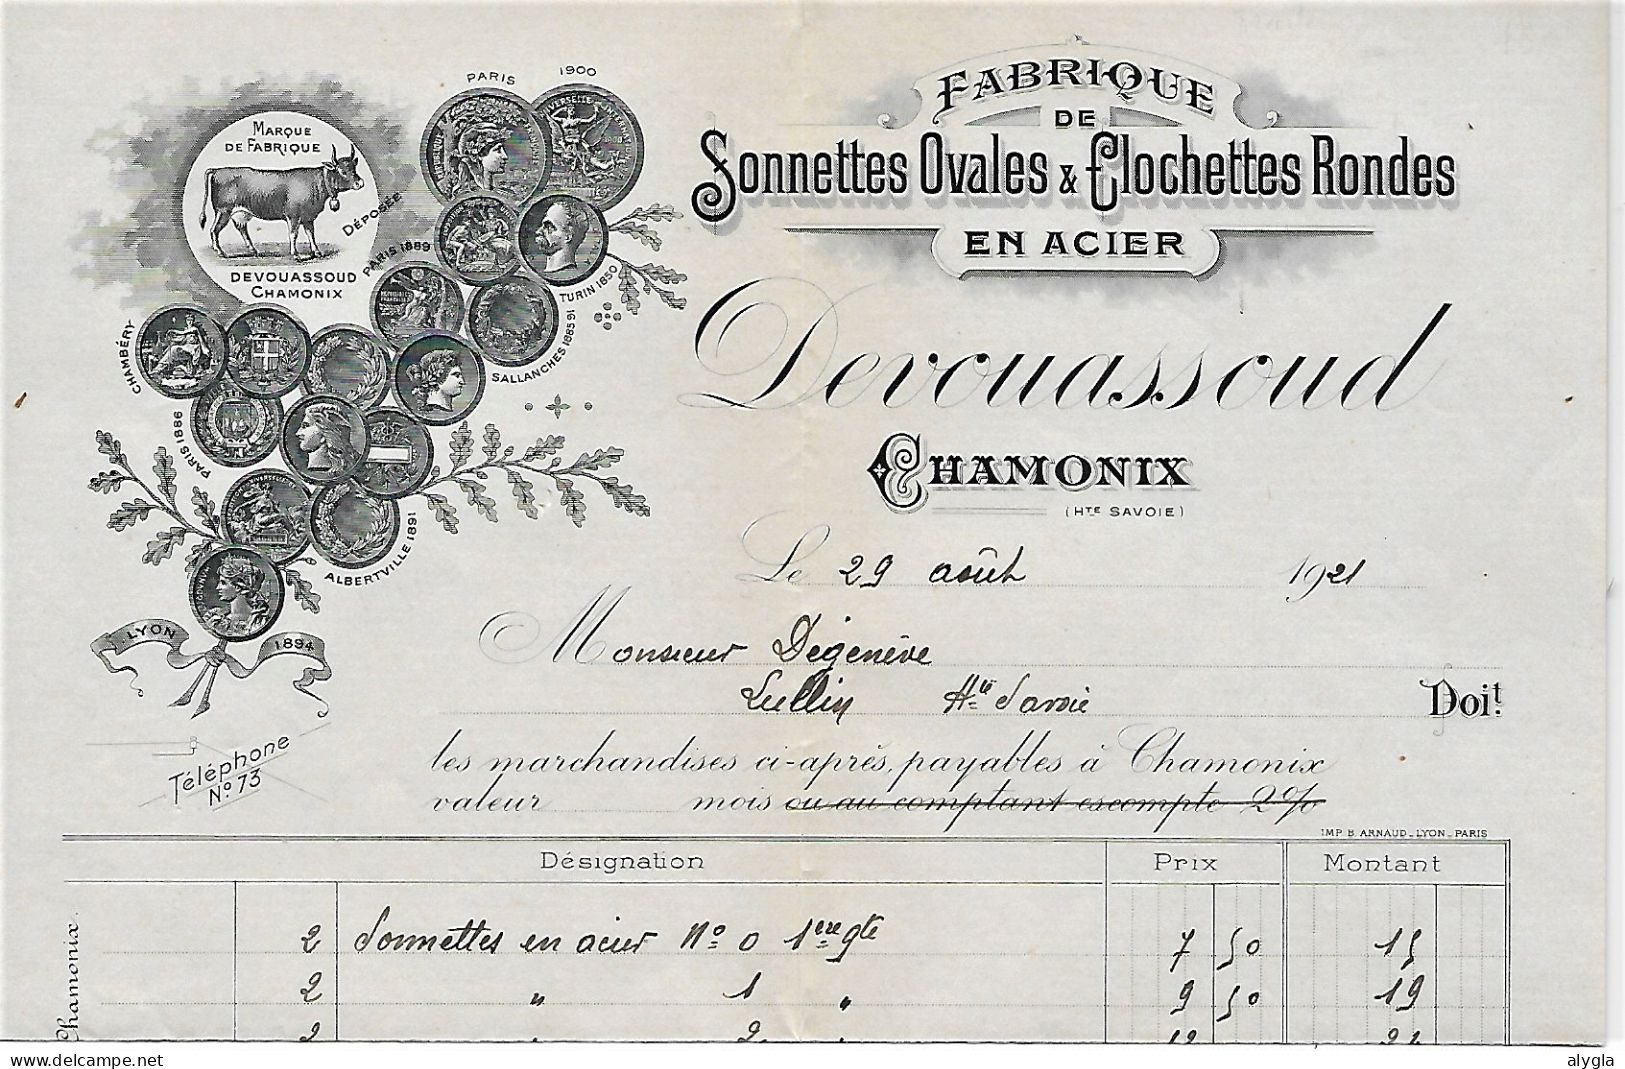 FABRIQUE
DE
Sonnettes Ovales & Clochettes Rondes
EN ACIER
Devouassoud
CHAMONIX
(HTE SAVOIE)
MARQUE
DE FABRIQUE
DÉPOSÉE
DEVOUASSOUD
CHAMONIX
PARIS 1900
PARIS 1889
TURIN 1850
SALLANCHES 1885 91
CHAMBÉRY
PARIS 1886
ALBERTVILLE 1891
LYON 1894
Téléphone
No. 73
Le 29 août 1921
Monsieur Dégenève
Lullin Hte Savoie
Doit.
les marchandises ci-après, payables à Chamonix
valeur mois ou au comptant escompte 2%
IMP. B. ARNAUD_LYON_PARIS
Désignation Prix Montant
2 Sonnettes en acier No 0 1ere gte 7 50 15
2 " 1 " 9 50 19
2 " 2 " 12 24
Chamonix.
www.delcampe.net
alygla